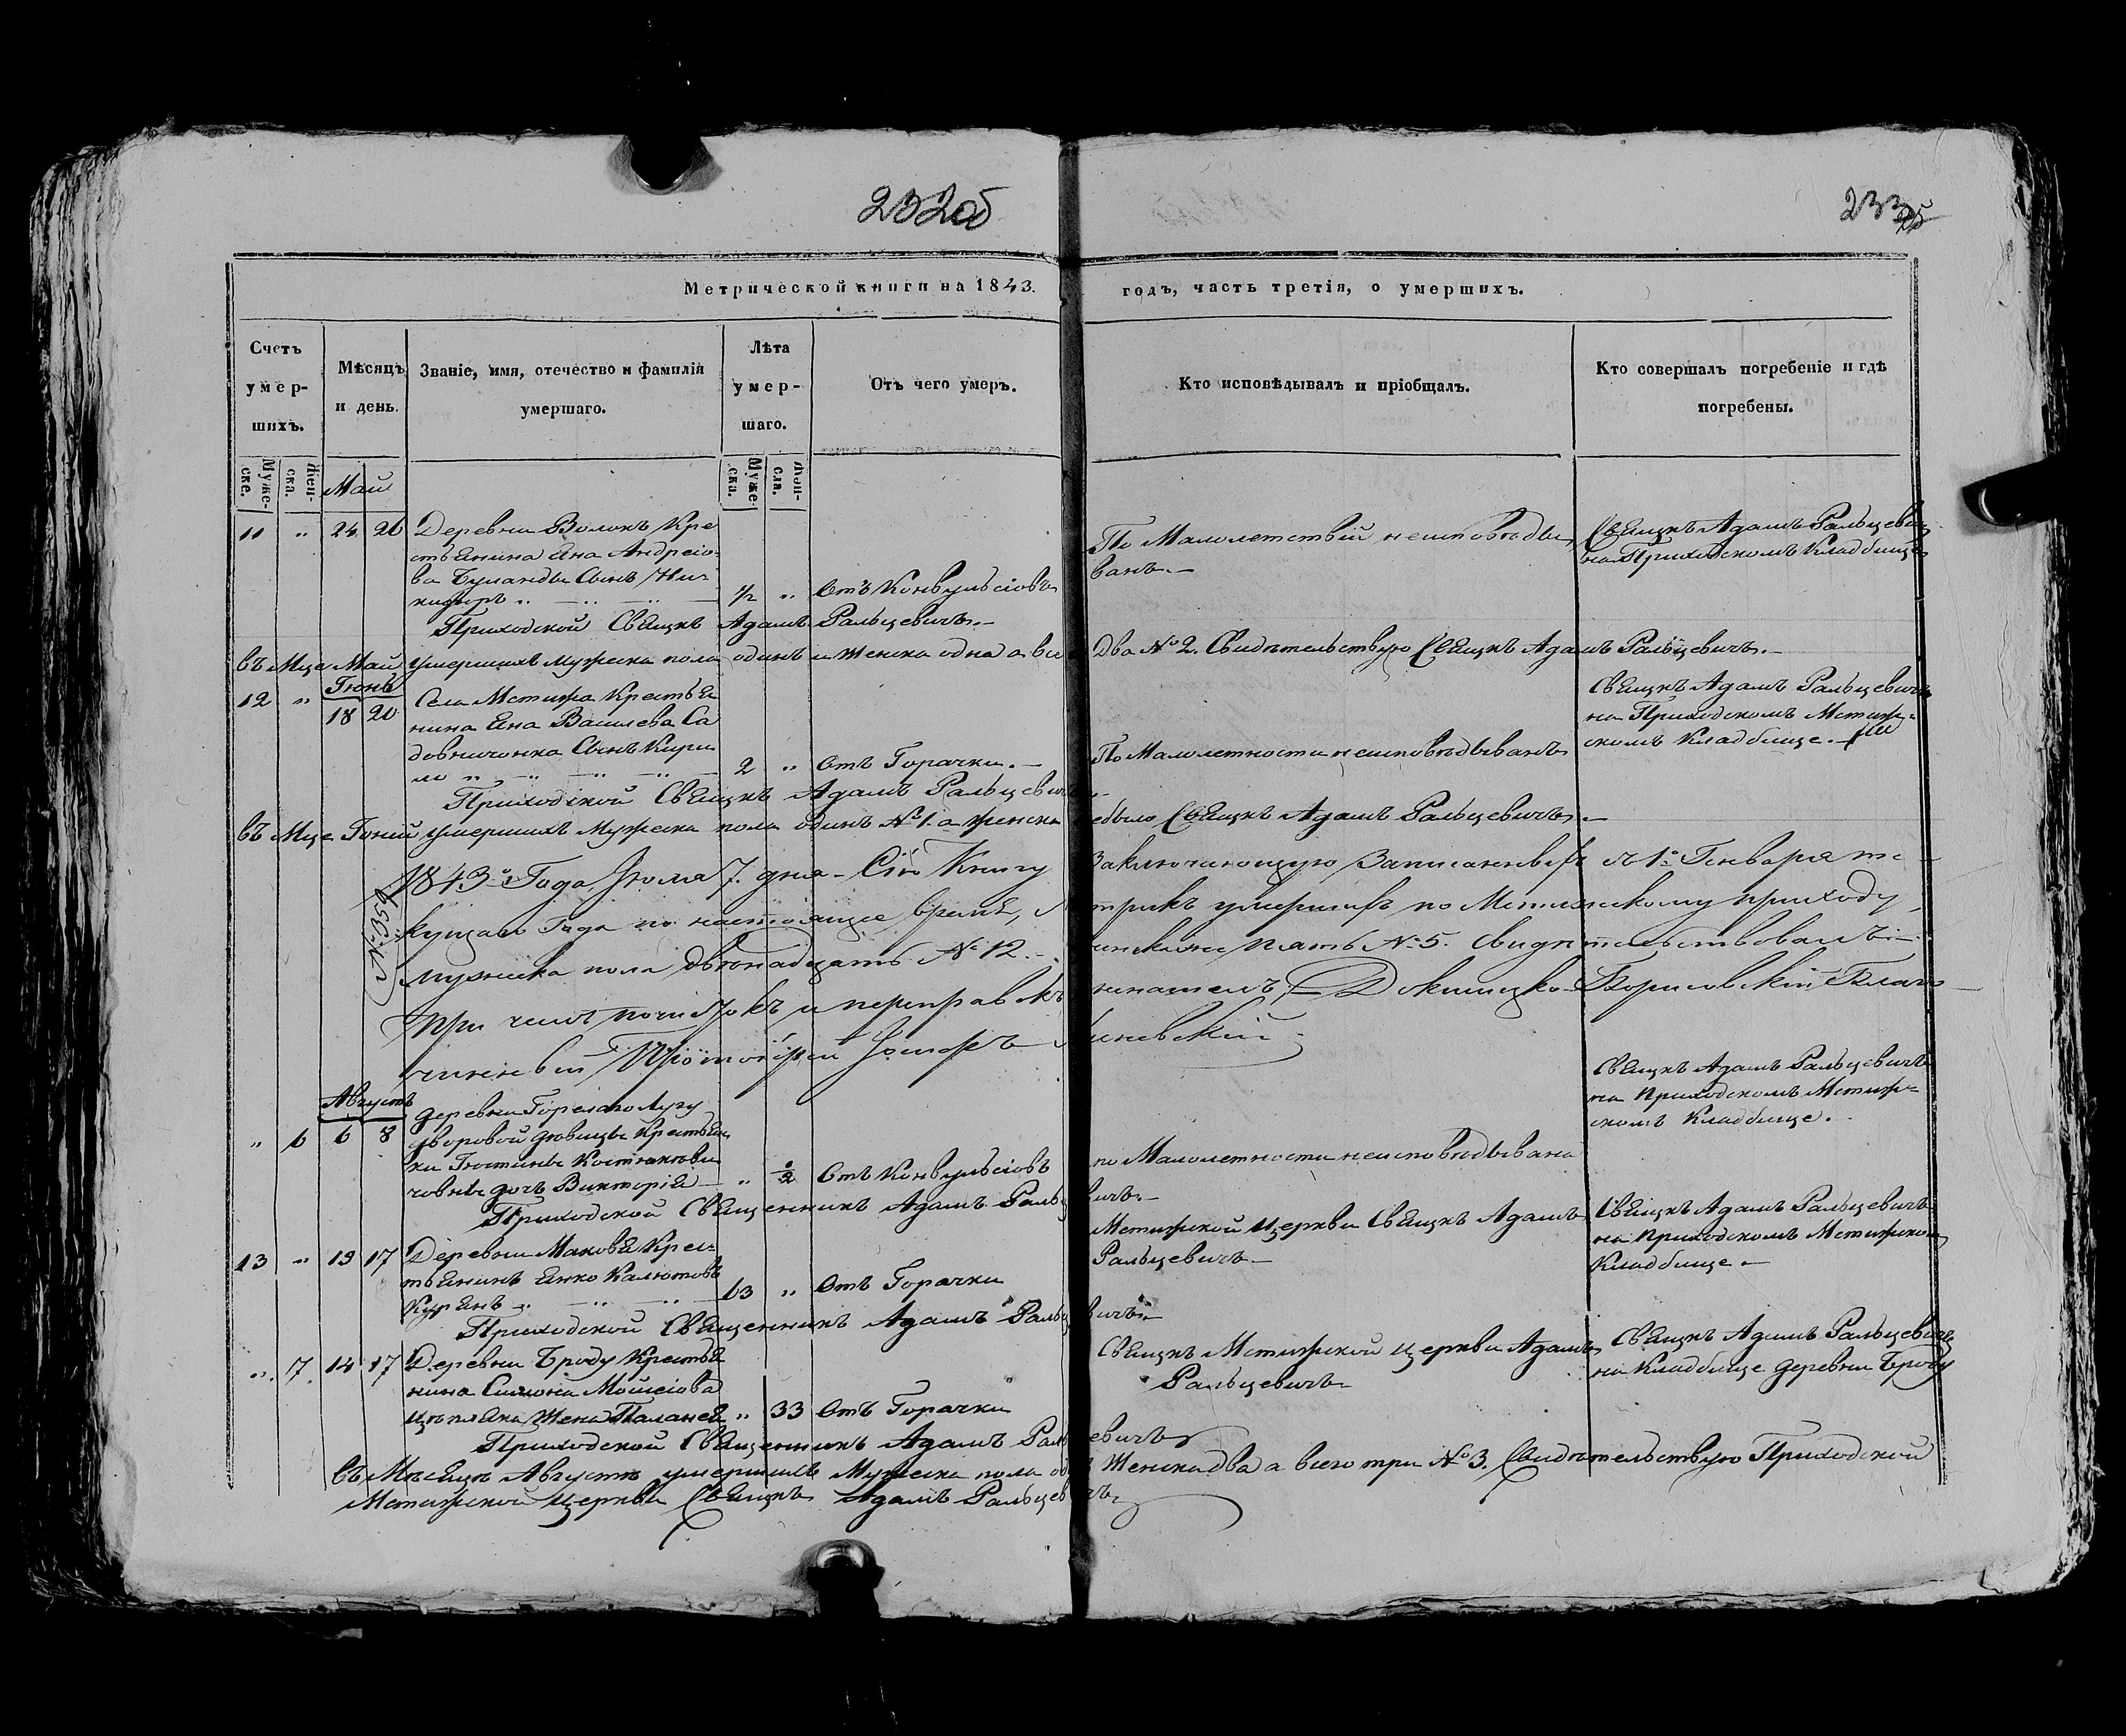 232об
233
Метрической книги на 1843.
годъ, часть третія, о умершихъ.
Счетъ умер-шихъ.
Мѣсяцъ и день.
Званіе, имя, отечество и фамилія умершаго.
Лѣта умер-шаго.
Отъ чего умеръ.
Кто исповѣдывалъ и пріобщалъ.
Кто совершалъ погребеніе и гдѣ погребены.
Муже-ске.
Жен-ска.
Май
Муже-ска.
Жен-ска.
11 " 24 26 Деревни Волокъ Кре
стьянина Яна Андреіо-
ва Буланды Сынъ Ни-
кифоръ " 1/2 " Отъ Конвульсіовъ
По Малолетствій неисповѣды
ванъ.
Свящкъ Адамъ Ральцевичъ
на Приходскомъ Кладбище
Приходской Свящкъ Адамъ Ральцевичъ.
Въ Мце Май умершихъ мужеска пола одинъ и женска одна а все
два №2. Свидѣтельствую Свящкъ Адамъ Ральцевичъ.
Іюнь
12 " 18 20 Села Мстижа Крестья
нина Яна Василева Са
довничонка Сынъ Кири
ло " 2 " Отъ Горячки.
По Малолетности неисповѣдыванъ
Свящкъ Адамъ Ральцевичъ
на Приходскомъ Мстиж-
скомъ Кладбище.
Приходской Свящкъ Адамъ Ральцеви
въ Мце Іюній умершихъ Мужеска пола одинъ №1. а женска
небыло Свящкъ Адамъ Ральцевичъ.
1843го Года Іюля 7. дня Сію Книгу
заключающую Записанныхъ съ 1го Генваря те
кущаго Года по настоящее время,
метрикъ умершихъ по Мстижскому приходу,
мужеска пола двѣнадцать №12.
женска пять №5. Свидѣтельствовалъ
При чемъ почистокъ и переправокъ
Докшицко-Борисовскій Благо
чинный Протоіерей Іосифъ
Августъ
" 6 6 8 деревни Горелаго Лугу
дворовой дѣвицы Крестьян
ки Іюстины Костюкеви
човны дочъ Викторія " 1/2 Отъ Конвульсіовъ
по Малолетности неисповѣдывана
Свящкъ Адамъ Ральцевичъ
на Приходскомъ Мстиж-
скомъ Кладбище.
Приходской Священникъ Адамъ Ральцевичъ.
13 " 15 17 Деревни Маковя Крес-
тьянинъ Янко Калютовъ
Курянъ " 63 " Отъ Горячки
Мстижской Церкви Свящкъ Адамъ
Ральцевичъ
Свящкъ Адамъ Ральцевичъ
на приходскомъ Мстижском
Кладбище.
Приходской Священникъ Адамъ Ральцевичъ
" 7. 14 17 Деревни Броду Крестья
нина Симона Мойсіова
Цѣпляка Жена Паланея " 33 Отъ Горячки
Свящкъ Мстижской Церкви Адамъ
Ральцевичъ
Свящкъ Адамъ Ральцевичъ
на Кладбище деревни Броду
Приходской Священникъ Адамъ Ральцевичъ
Въ Мѣсяцѣ Августѣ умершихъ Мужеска пола од
Женска два а всего три №3. Свидѣтельствую Приходской
Мстижской Церкви Свящкъ Адамъ Ральцевичъ